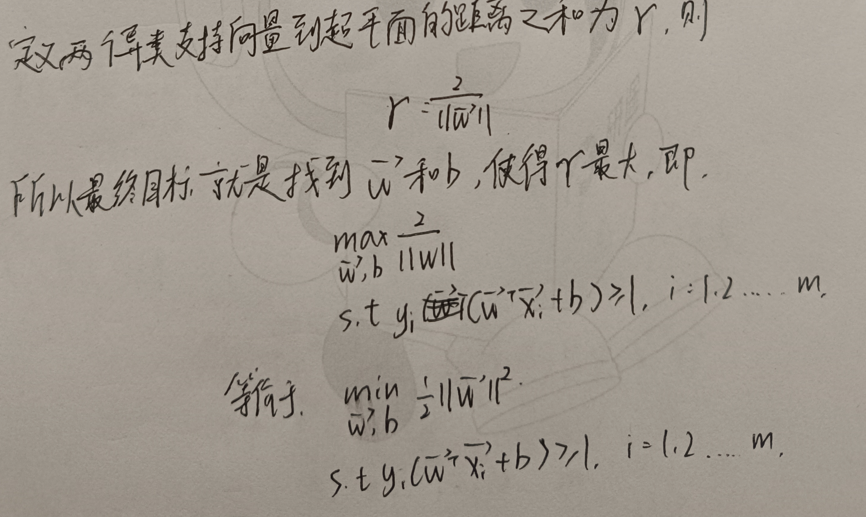 定义两个异类支持向量到超平面的距离之和为 r, 则
r = 2/||w⃗||
所以最终目标就是找到 w⃗ 和 b, 使得 r 最大, 即.
max_{w⃗,b} 2/||w||
s.t y_i (w⃗^T x⃗_i + b) ≥ 1, i = 1.2 ..... m.
等价于. min_{w⃗,b} 1/2 ||w⃗||².
s.t y_i (w⃗^T x⃗_i + b) ≥ 1. i = 1.2 .... m.